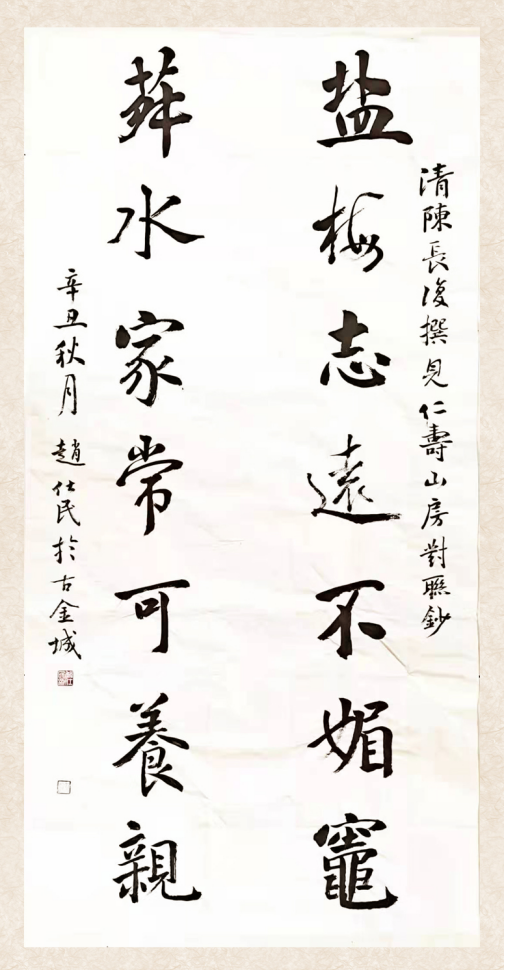 清陳長復撰見仁壽山房對聮鈔
盐梅志遠不媚竈
菽水家常可養親
辛丑秋月 趙仕民於古金城